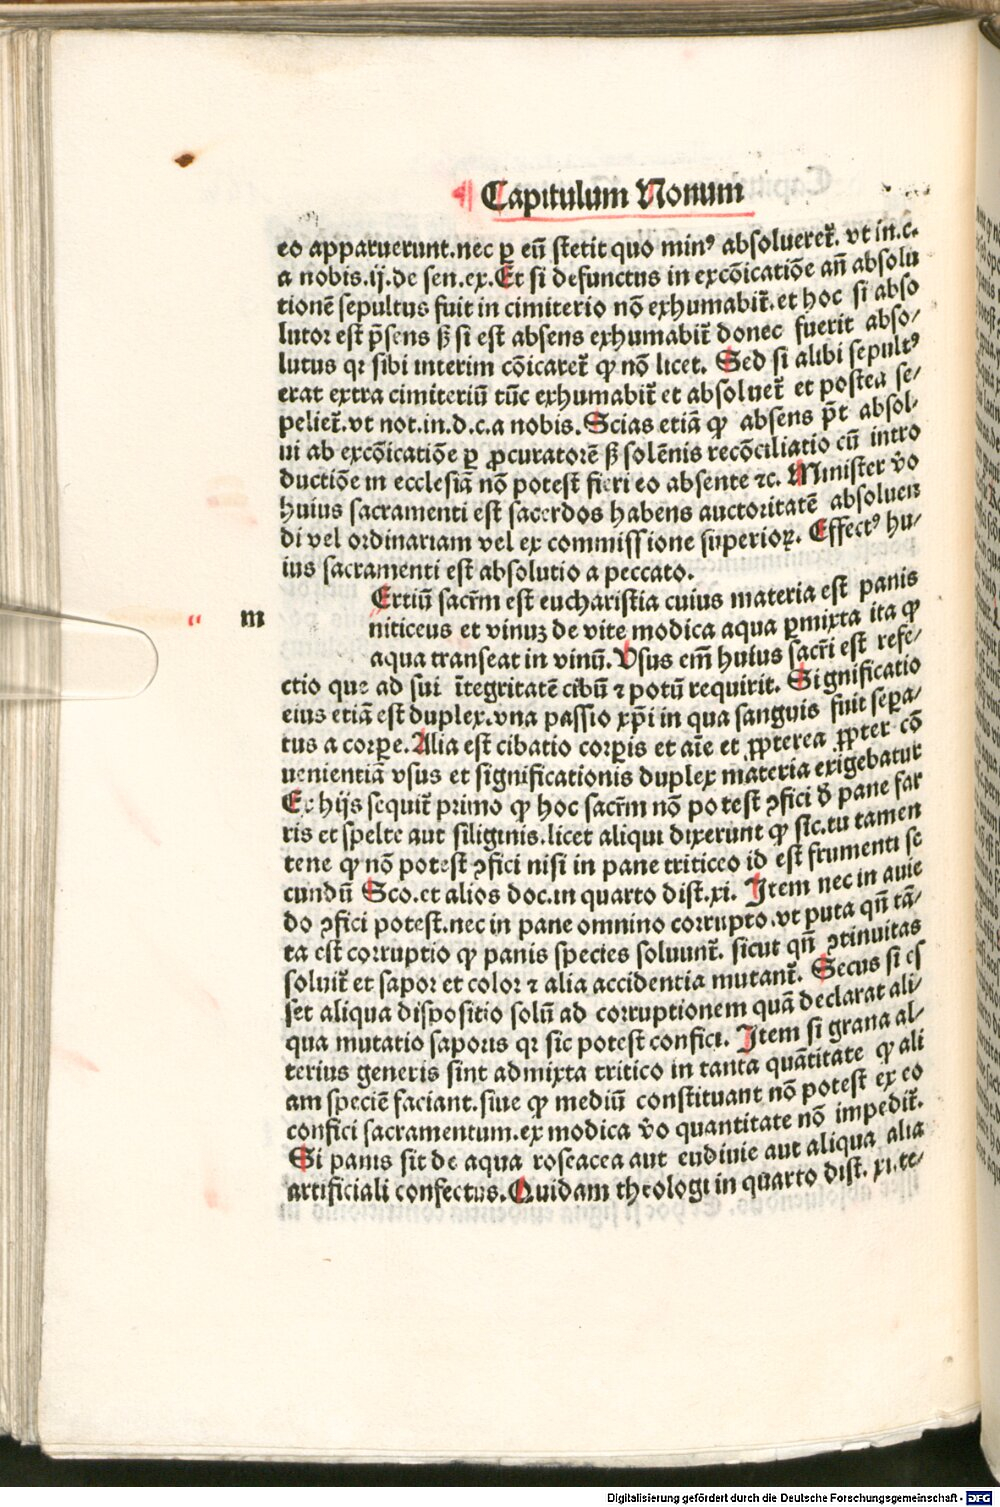 Capitulum Nonum
eo apparuerunt.nec ꝑ eũ stetit quo minꝰ absolueret᷑. vt in.c.
a nobis.ij.de sen.ex.Et si defunctus in excõicatiõe añ absolu
tionẽ sepultus fuit in cimiterio nõ exhumabit᷑.et hoc si abso
lutor est p̃sens ß si est absens exhumabit᷑ donec fuerit abso⸗
lutus qꝛ sibi interim cõicaret᷑ ꝙ nõ licet. Sed si alibi sepultꝰ
erat extra cimiteriũ tũc exhumabit᷑ et absoluet᷑ et postea se⸗
peliet᷑.vt not.in.d.c.a nobis.Scias etiã ꝙ absens p̃t absol⸗
ui ab excõicatiõe ꝑ ꝓcuratorẽ ß solẽnis recõciliatio cũ intro
ductiõe in ecclesiã nõ potest fieri eo absente ⁊c. Minister v̾o
huius sacramenti est sacerdos habẽns auctoritatẽ absoluen
di vel ordinariam vel ex commissione superioꝝ. Effectꝰ hu⸗
ius sacramenti est absolutio a peccato.
Ertiũ sacr̃m est eucharistia cuius materia est panis
m niticeus et vinuz de vite modica aqua ꝑmixta ita ꝙ
aqua transeat in vinũ. Usus em̃ huius sacr̃i est refe⸗
ctio que ad sui ĩtegritatẽ cibũ ⁊ potũ requirit. Significatio
eius etiã est duplex.vna passio xp̃i in qua sanguis fuit sepa⸗
tus a corꝑe.Alia est cibatio corꝑis et aĩe et ꝓpterea ꝓpter cõ
uenientiã vsus et significationis duplex materia exigebatur
Ex hijs sequit᷑ primo ꝙ hoc sacr̃m nõ potest ꝯfici ð pane far
ris et spelte aut siliginis.licet aliqui dixerunt ꝙ sic.tu tamen
tene ꝙ nõ potest ꝯfici nisi in pane triticeo id est frumenti se
cundũ Sco.et alios doc.in quarto dist.xi. Item nec in auie
do ꝯfici potest.nec in pane omnino corrupto.vt puta qñ tã⸗
ta est corruptio ꝙ panis species soluunt᷑. sicut qñ ꝯtinuitas
soluit᷑ et sapor et color ⁊ alia accidentia mutant᷑. Secus si es
set aliqua dispositio solũ ad corruptionem quã declarat ali⸗
qua mutatio saporis qꝛ sic potest confici. Item si grana al⸗
terius generis sint admixta tritico in tanta quãtitate ꝙ ali
am speciẽ faciant.siue ꝙ mediũ constituant nõ potest ex eo
confici sacramentum.ex modica v̾o quantitate nõ impedit᷑.
Si panis sit de aqua roseacea aut endiuie aut aliqua alia
artificiali confectus.Quidam theologi in quarto dist. xi.te⸗
Digitalisierung gefördert durch die Deutsche Forschungsgemeinschaft - DFG